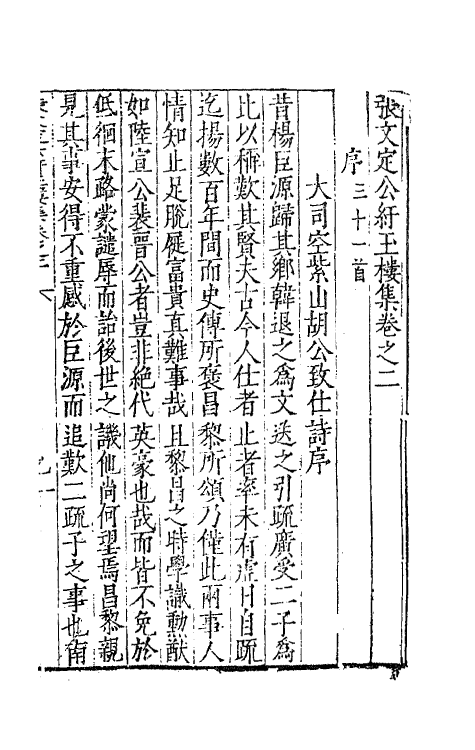 張文定公紆玉樓集卷之二
序三十一首
大司空紫山胡公致仕詩序
昔楊巨源歸其鄉韓退之爲文送之引疏廣受二子爲
比以稱歎其賢夫古今人仕者止者率未有虛日自疏
迄楊數百年間而史傳所褒昌黎所頌乃僅此兩事人
情知止足脫屣富貴真難事哉且黎昌之時學識勳猷
如陸宣公裴晉公者豈非絕代英豪也哉而皆不免於
低徊末路蒙譴辱而詒後世之譏他尚何望焉昌黎親
見其事安得不重感於巨源而追歎二疏子之事也